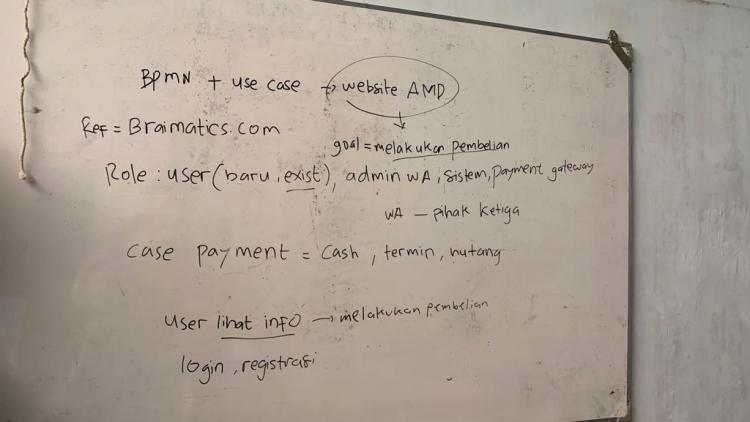 BPMN + use case → website AMD
Ref = Braimatics.com
goal = melakukan pembelian
Role : user (baru, exist), admin WA, sistem, payment gateway
WA – pihak ketiga
case payment = Cash, termin, hutang
User lihat info → melakukan pembelian
login, registrasi